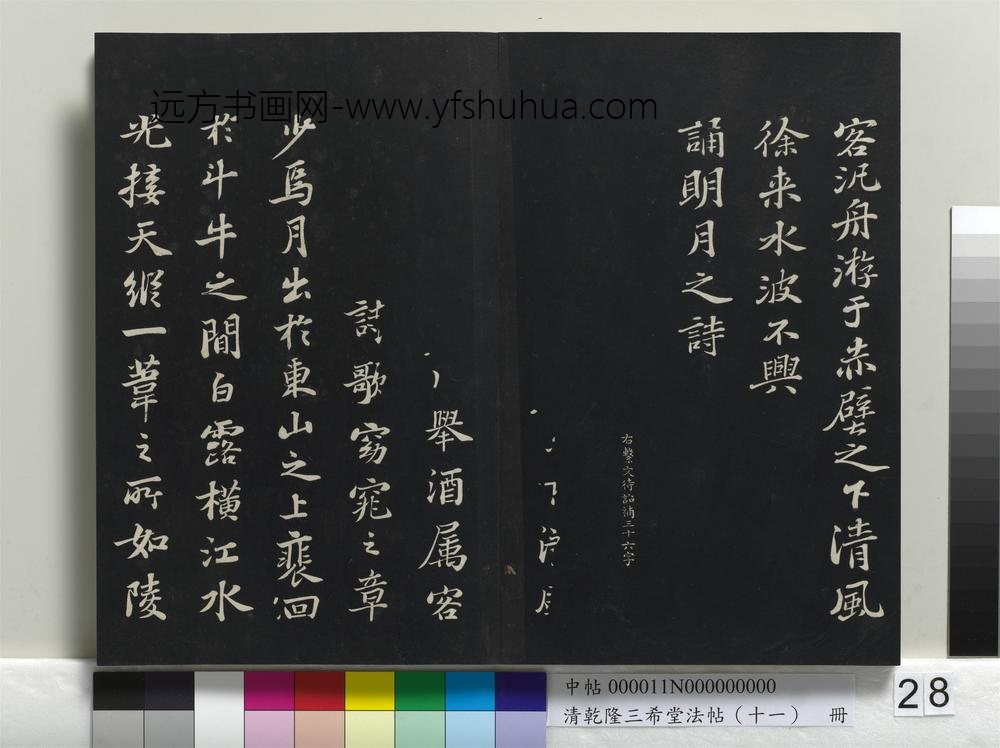 远方书画网-www.yfshuhua.com
客汎舟游于赤壁之下清風
徐来水波不興
誦明月之詩
右繫文待詔補三十六字
舉酒属客
詩歌窈窕之章
少焉月出於東山之上裴徊
於斗牛之間白露橫江水
光接天縱一葦之所如陵
中帖 000011N000000000
清乾隆三希堂法帖（十一） 冊
28